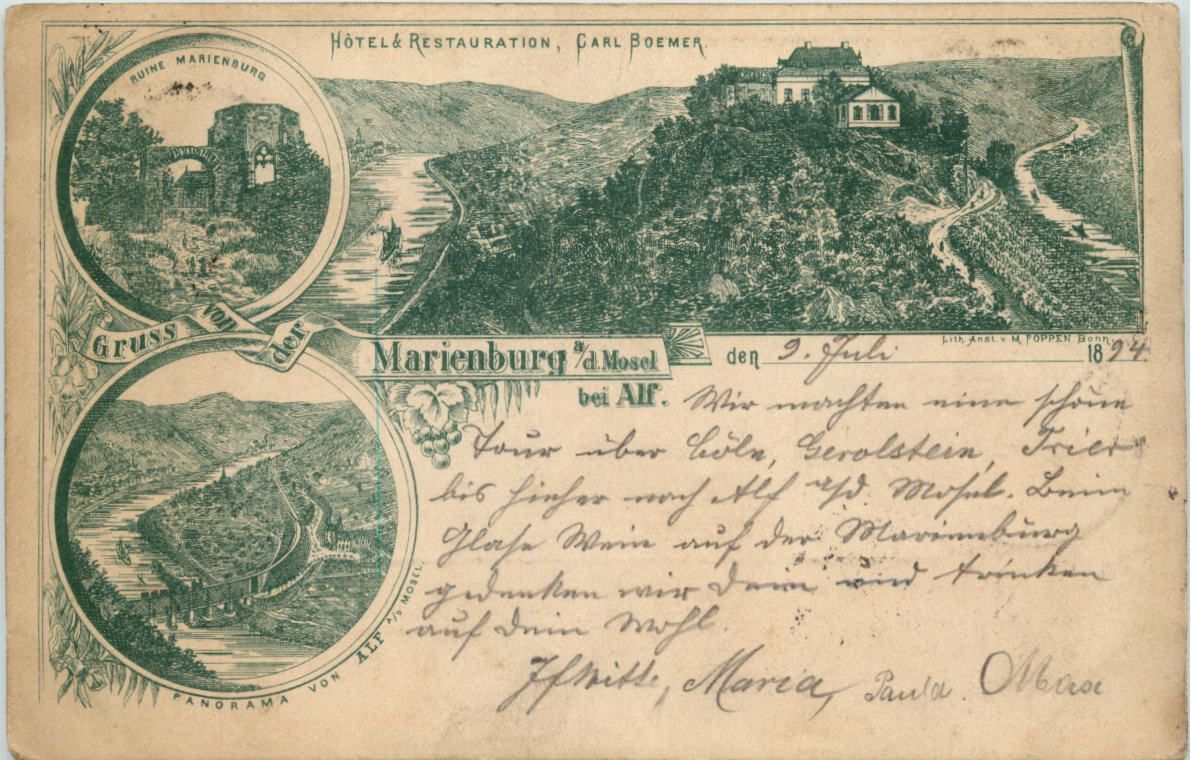 HÔTEL & RESTAURATION, CARL BOEMER.
RUINE MARIENBURG
Gruss von der
Marienburg a/d. Mosel
bei Alf.
Lith. Anst. v. M. POPPEN Bonn.
den 9. Juli 1894
Wir machten eine schöne
Tour über Cöln, Gerolstein, Trier
bis hieher nach Alf a/d. Mosel. Beim
Glase Wein auf der Marienburg
gedenken wir Dein und trinken
auf Dein Wohl.
Maria, Paula. Max
PANORAMA VON ALF A/D MOSEL.